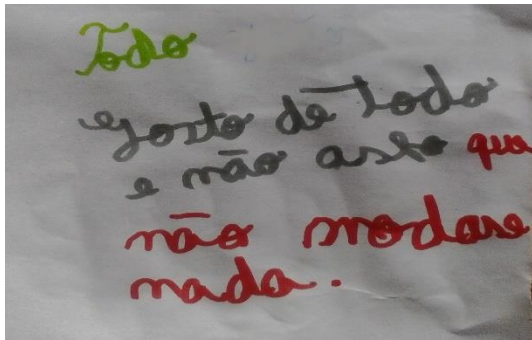 Todo
gosto de todo
e não asto que
não modare
nada.